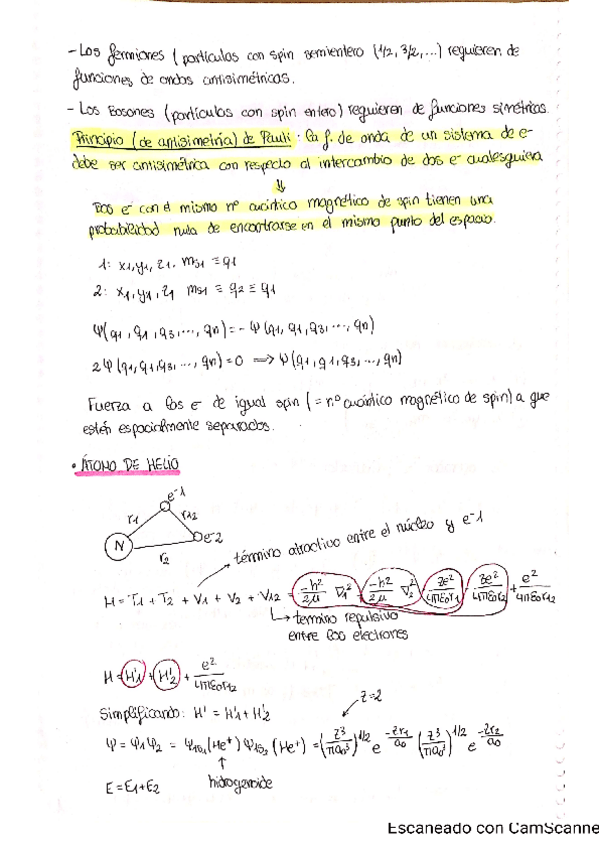 - Los fermiones (partículas con spin semientero (1/2, 3/2,...) requieren de
funciones de ondas antisimétricas.
- Los Bosones (partículas con spin entero) requieren de funciones simétricas.
Principio (de antisimetría) de Pauli: la f. de onda de un sistema de e-
debe ser antisimétrica con respecto al intercambio de dos e- cualesquiera
⇓
Dos e- con el mismo nº cuántico magnético de spin tienen una
probabilidad nula de encontrarse en el mismo punto del espacio.
1: x1, y1, z1. ms1 ≡ q1
2: x1, y1, z1 ms1 ≡ q2 ≡ q1
Ψ(q1, q1, q3, ..., qn) = - Ψ(q1, q1, q3, ..., qn)
2Ψ(q1, q1, q3, ..., qn) = 0 ⟹ Ψ(q1, q1, q3, ..., qn)
Fuerza a los e- de igual spin (= n.º cuántico magnético de spin) a que
estén espacialmente separados.
• ÁTOMO DE HELIO
e-1
r1 r12
N e-2
r2
término atractivo entre el núcleo y e-1
H = T1 + T2 + V1 + V2 + V12 = -ħ²/2μ ∇1² -ħ²/2μ ∇2² Ze²/4πε0r1 Ze²/4πε0r2 + e²/4πε0r12
término repulsivo
entre los electrones
H = H'1 + H'2 + e²/4πε0r12
Z=2
Simplificando: H' = H'1 + H'2
Ψ = Ψ1Ψ2 = Ψ1s1(He+) Ψ1s2(He+) = (Z³/πa0³)^1/2 e^-Zr1/a0 (Z³/πa0³)^1/2 e^-Zr2/a0
↑
hidrogenoide
E = E1 + E2
Escaneado con CamScanne